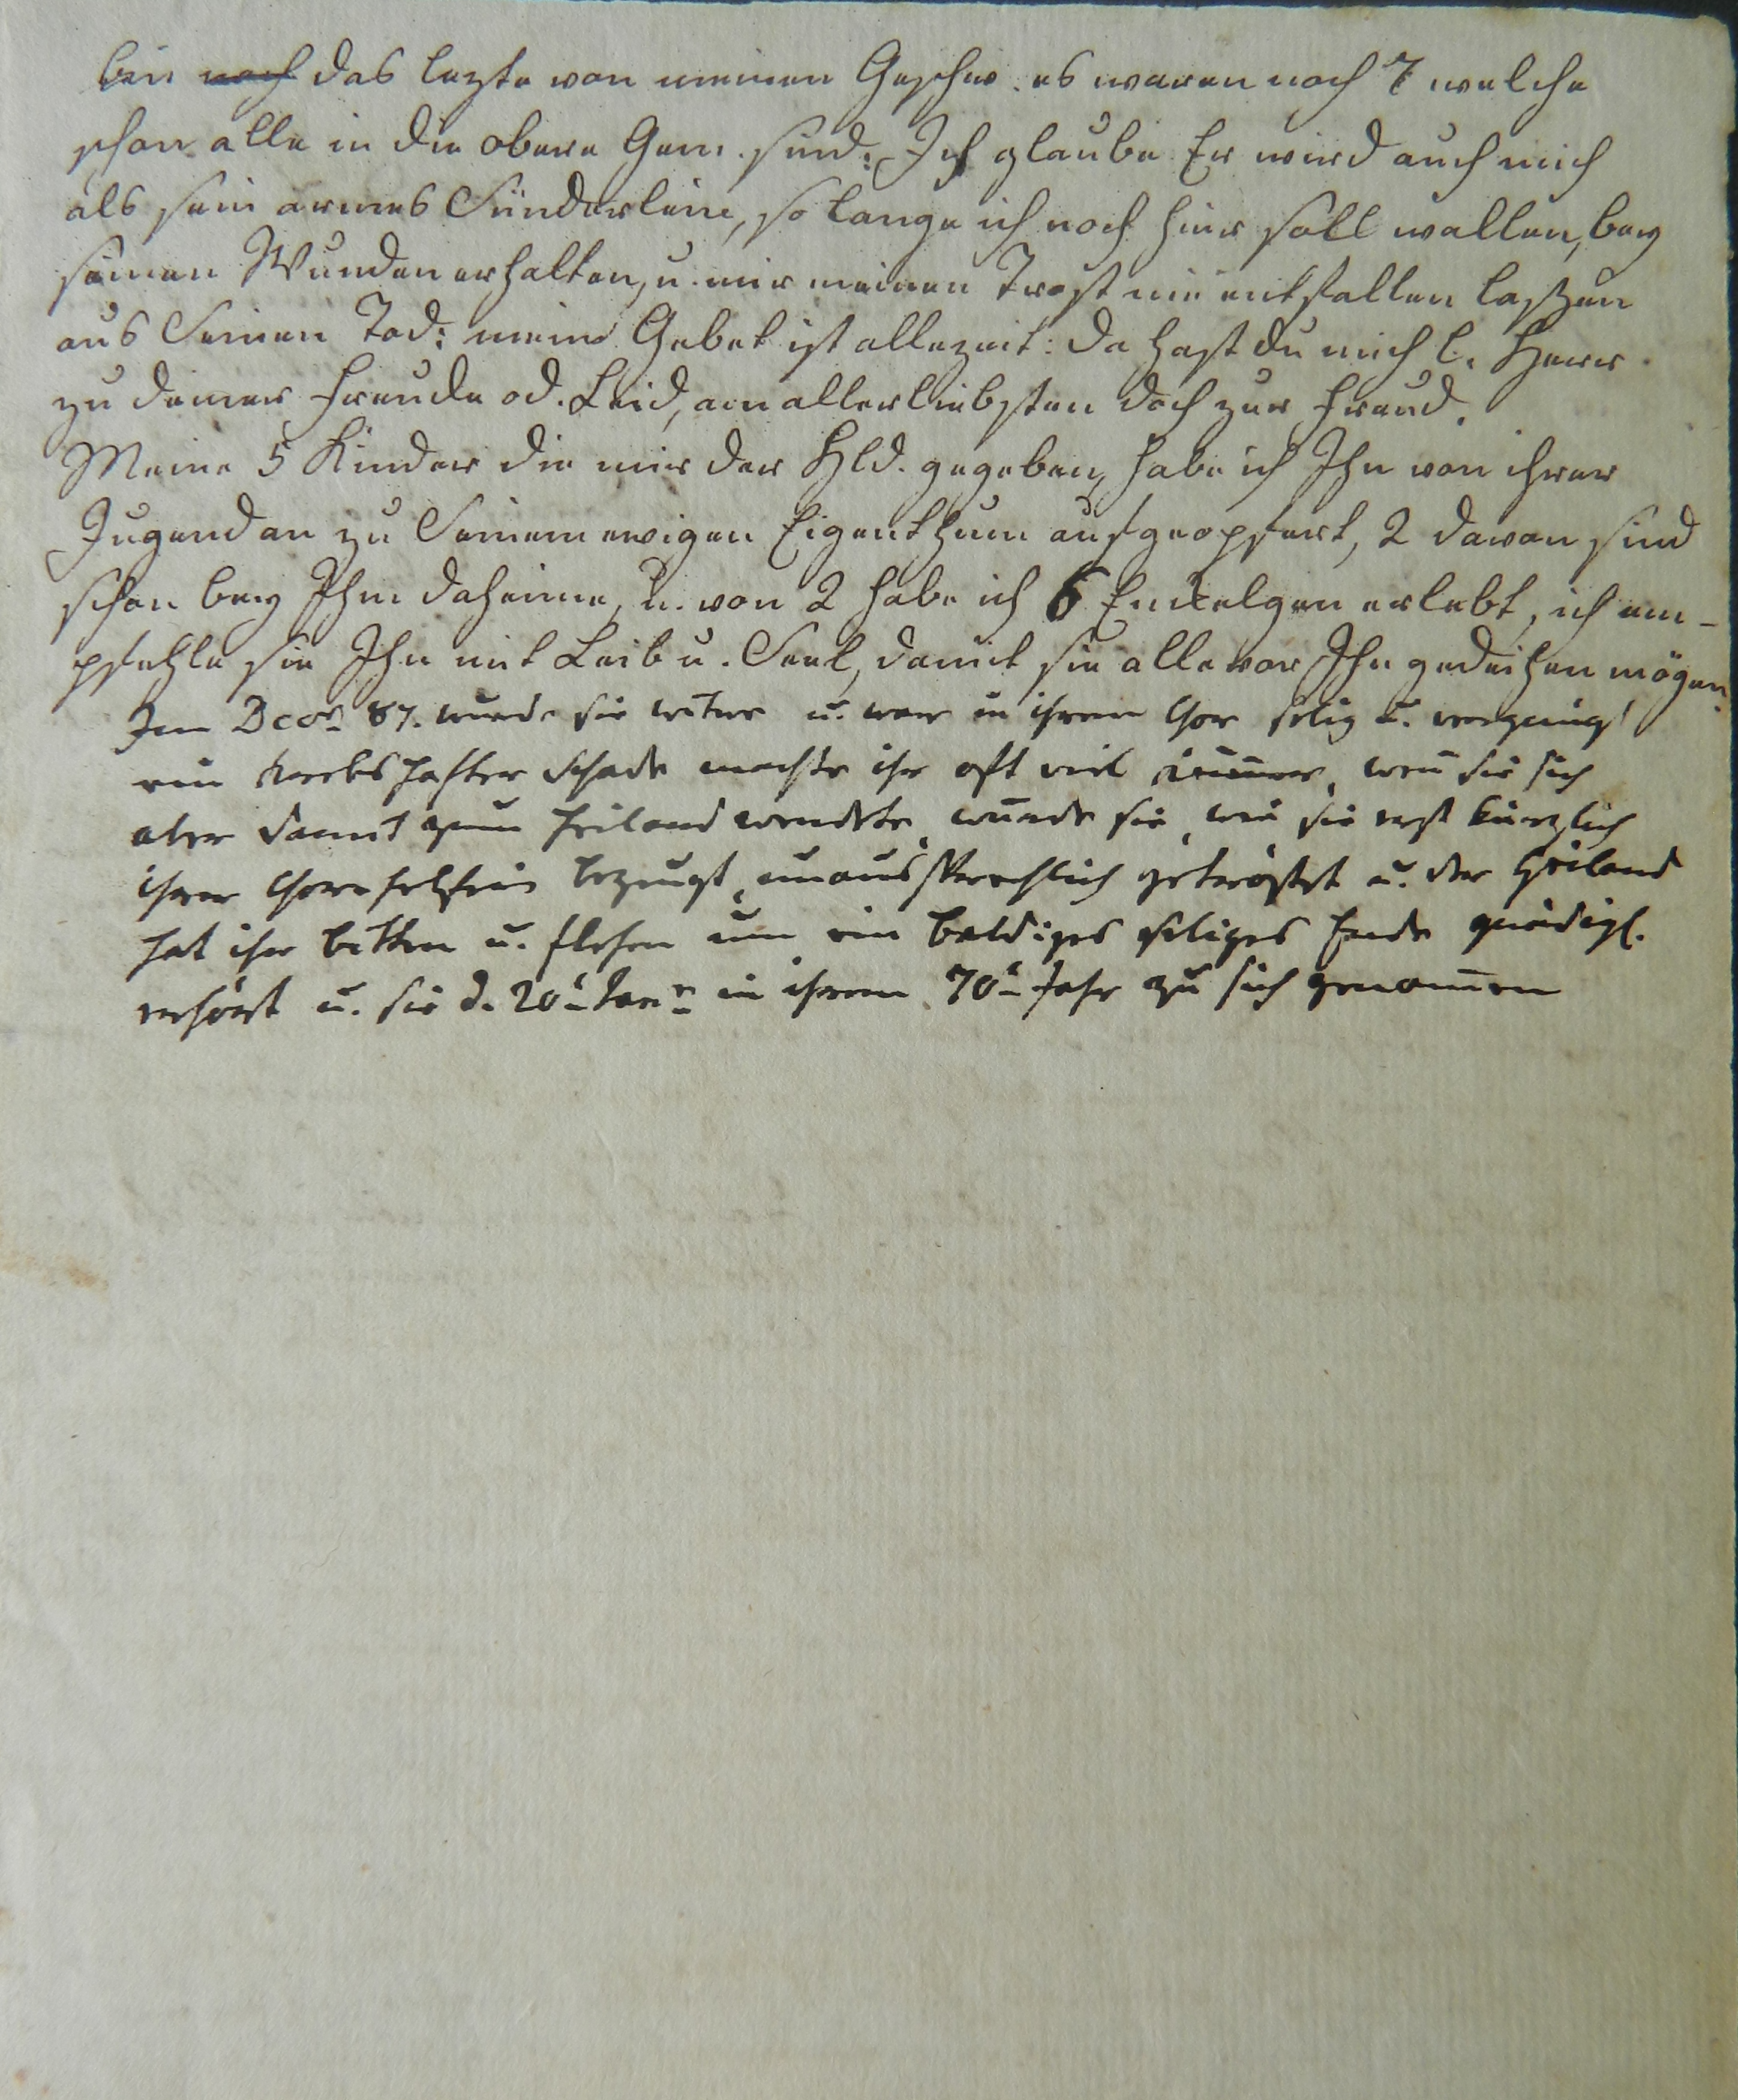 bin noch das lezte von meinen Geschw. es waren noch 7 welche
schon alle in die obere Gem. sind: Ich glaube Er wird auch mich
als sein armes Sünderlein, so lange ich noch hier soll wallen, bey
seinen Wunden erhalten, u. mir meinen Trost nie entfallen laszen
aus Seinen Tod: mein Gebet ist allezeit: Da hast du mich l. Herr.
zu deiner Freude od. Leid, am allerliebsten doch zur Freud.
Meine 5 Kinder die mir der Hld. gegeben, habe ich Ihn von ihrer
Jugend an zu Seinem ewigen Eigenthum aufgeopfert, 2 davon sind
schon bey Ihm daheime, u. von 2 habe ich 6 Enkelgen erlebt, ich em-
pfehle sie Ihn mit Leib u. Seel, damit sie alle vor Ihn gedeihen mögen.
Im Dcbr 87. wurde sie witwe u. war in ihrem Chor selig u. vergnügt
ein krebshafter Schade machte ihr oft viel kum̅er, wen̅ sie sich
aber damit zum Heiland wendete, wurde sie, wie sie erst kürzlich
ihrer Chorhelferin bezeugt, unaussprechlich getröstet u. der Heiland
hat ihr bitten u. flehen um ein baldiges seliges Ende gnädigl.
erhört u. sie d. 20t Janr in ihrem 70t Jahr zu sich genom̅en